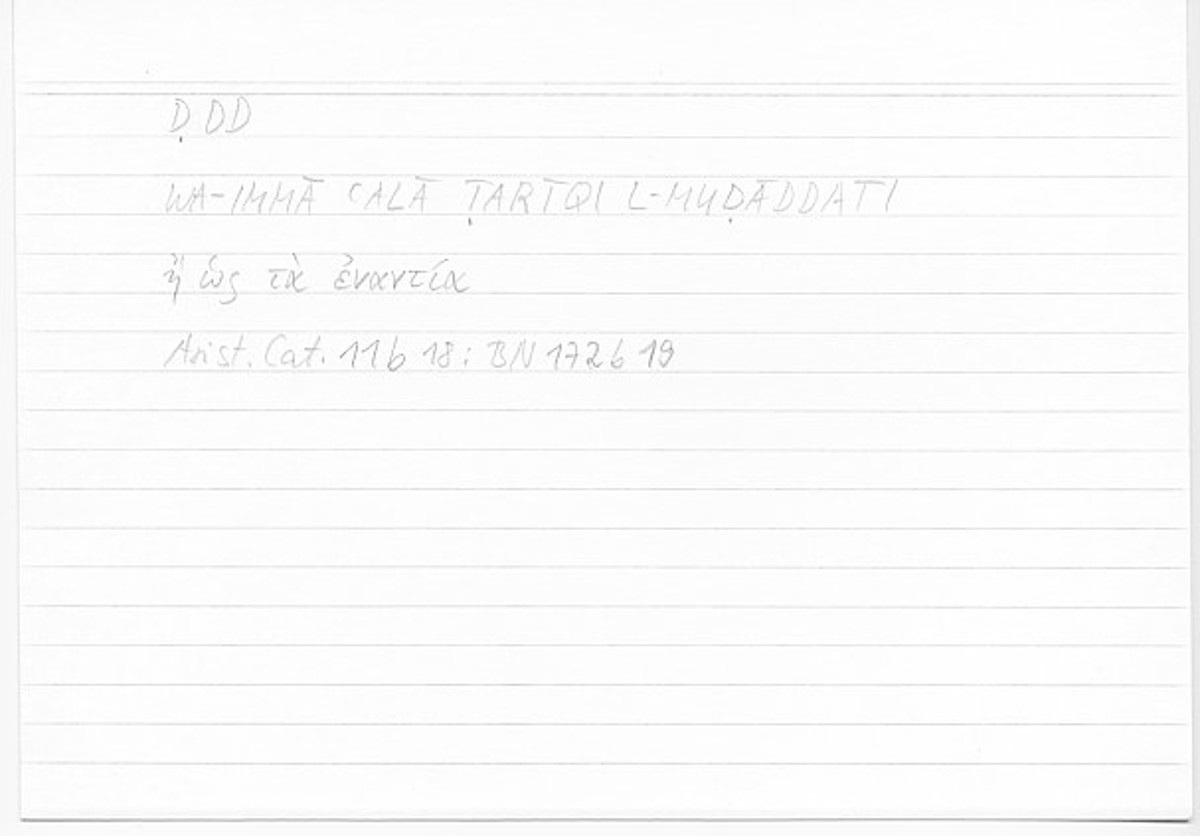 Ḍ DD
WA-IMMĀ ʿALĀ ṬARĪQI L-MUḌĀDDATI
ἢ ὡς τὰ ἐναντία
Arist. Cat. 11b 18: BN 172b 19